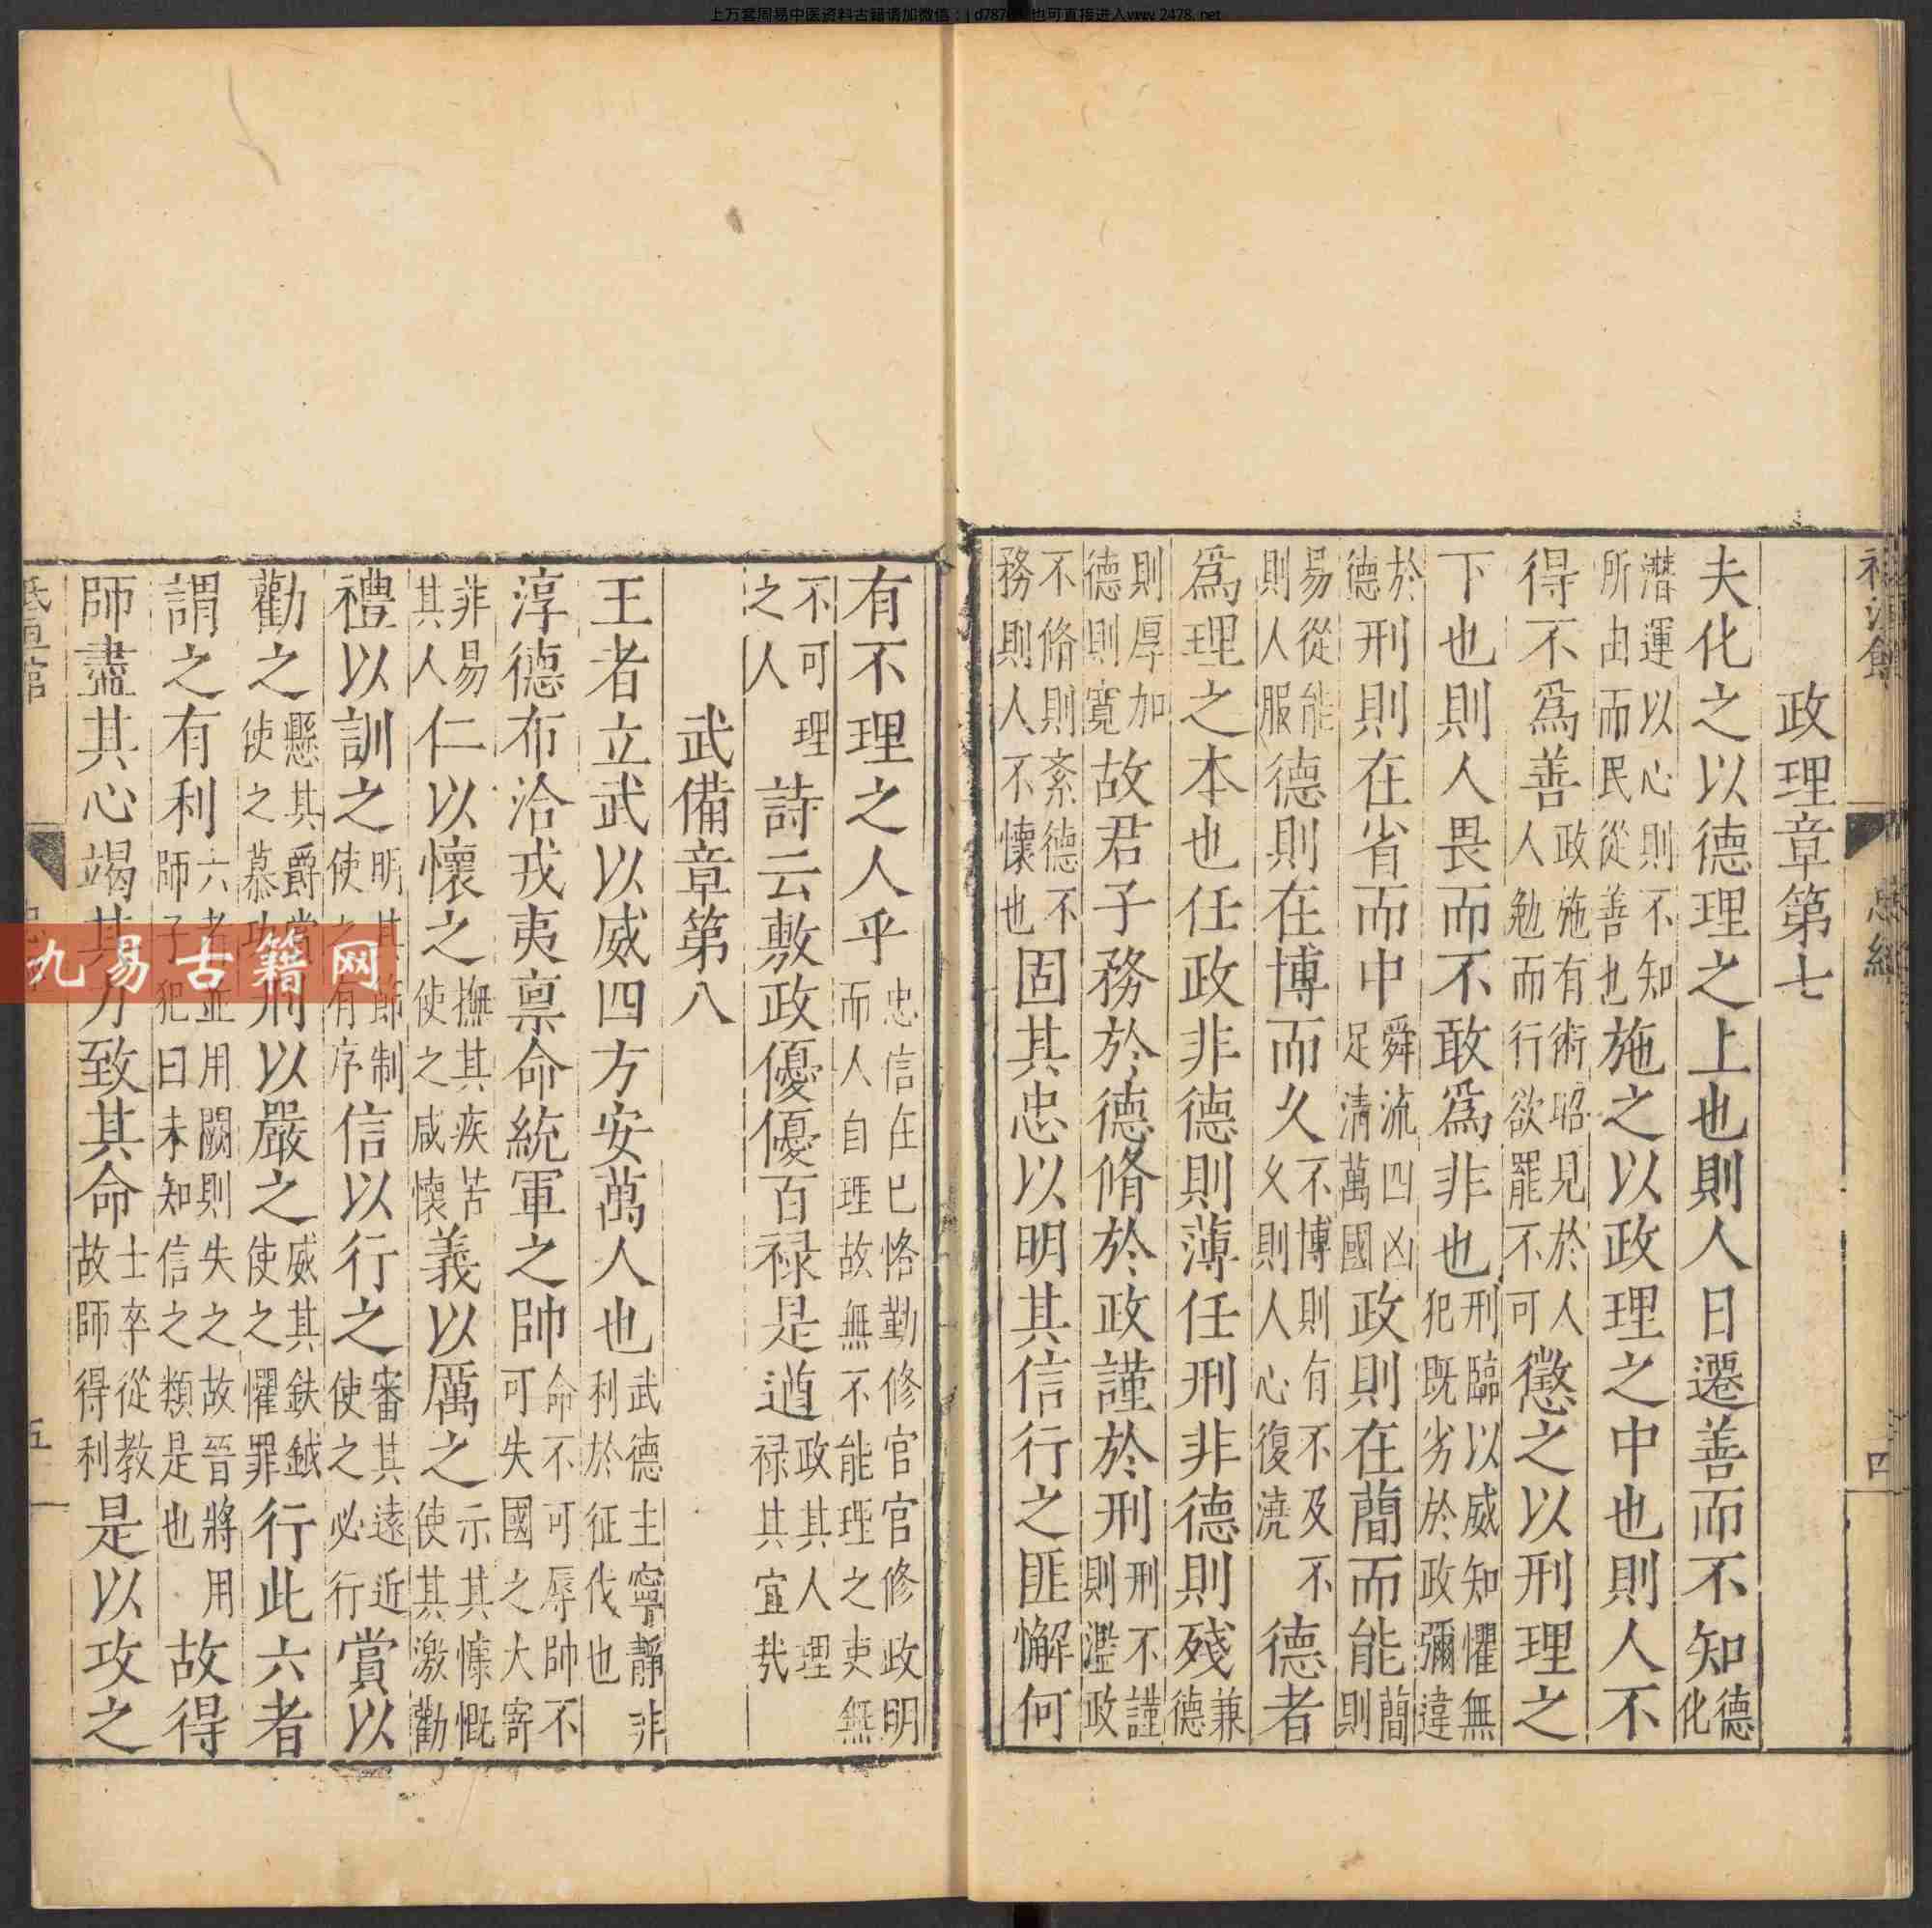 政理章第七
夫化之以德理之上也則人日遷善而不知德化
潛運以心則不知所由而民從善也施之以政理之中也則人不
得不爲善政施有術昭見於人人勉而行欲罷不可懲之以刑理之
下也則人畏而不敢爲非也刑臨以威知懼無犯既劣於政彌違
於德刑則在省而中舜流四凶足清萬國政則在蕳而能蕳則
易從能則人服德則在博而久不博則有不及不久則人心復澆德者
爲理之本也任政非德則薄任刑非德則殘兼德
則厚加德則寬故君子務於德脩於政謹於刑刑不謹則濫政
不脩則紊德不務則人不懷也固其忠以明其信行之匪懈何
忠經
四
有不理之人乎忠信在已恪勤修官官修政明而人自理故無不能理之吏無
不可理之人詩云敷政優優百禄是遒政其人理禄其宜㢤
武備章第八
王者立武以威四方安萬人也武德主寧靜非利於征伐也
淳德布洽戎夷禀命統軍之帥命不可辱帥不可失國之大寄
非易其人仁以懷之撫其疾苦使之咸懷義以厲之示其慷慨使其激勸
禮以訓之明其節制使之有序信以行之審其遠近使之必行賞以
勸之懸其爵賞使之慕功刑以嚴之威其鈇鉞使之懼罪行此六者
謂之有利六者並用闕則失之故晉將用師子犯曰未知信之類是也故得
師盡其心竭其力致其命士卒從教故師得利是以攻之
五
上万套周易中医资料古籍请加微信：
也可直接进入www.2478.net
九易古籍网